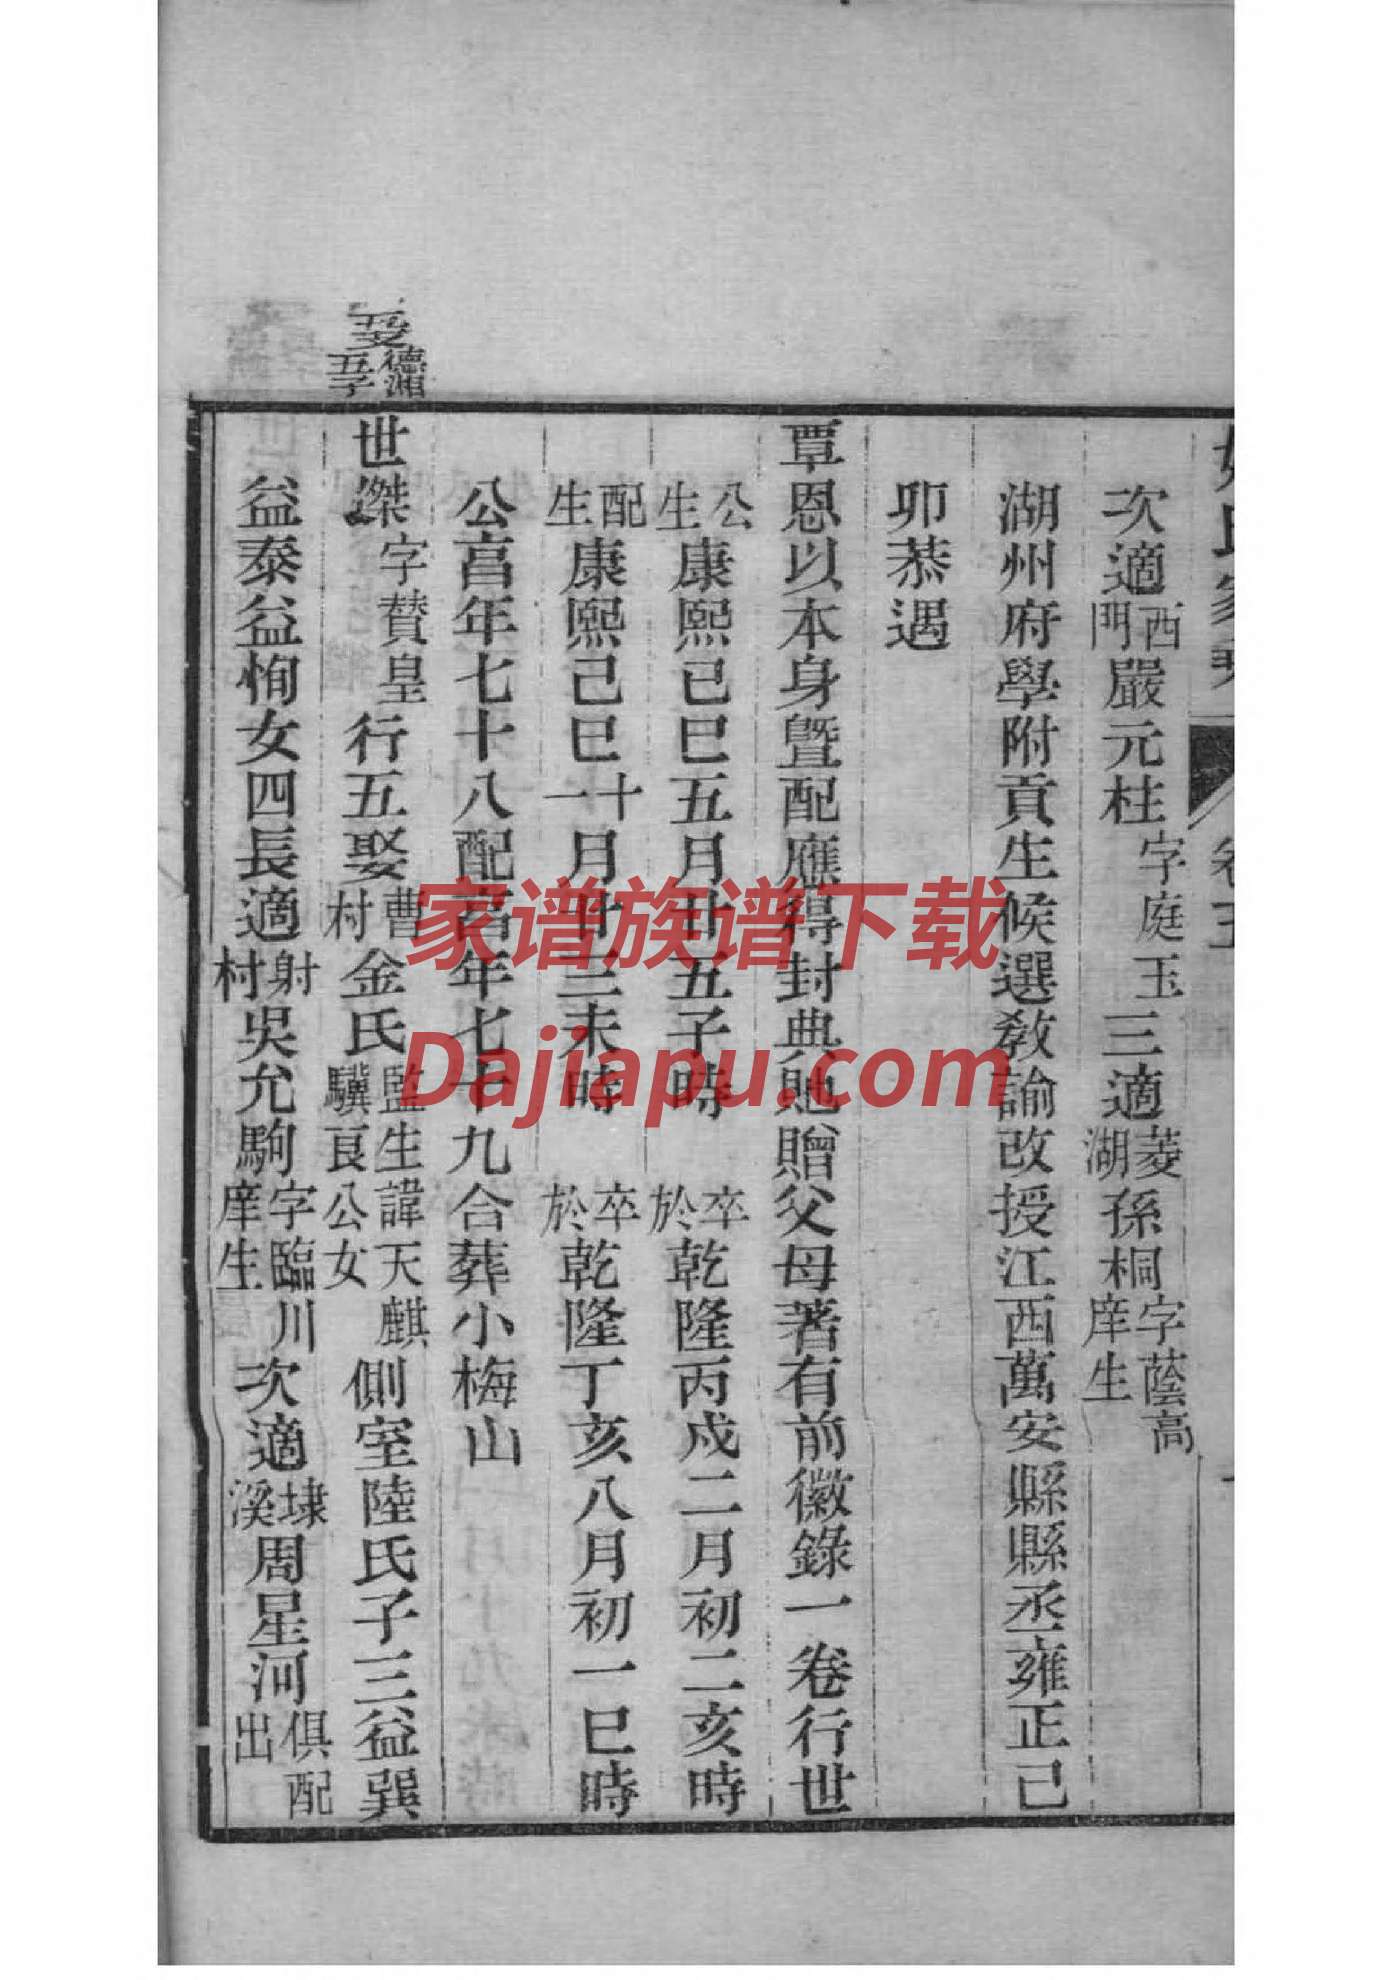 次適西門嚴元柱字庭玉三適菱湖孫桐字蔭高庠生
湖州府學附貢生候選教諭改授江西萬安縣縣丞雍正己
卯恭遇
覃恩以本身曁配應得封典貤贈父母著有前徽錄一卷行世
公生康熙己巳五月廿五子時 卒於乾隆丙戌二月初二亥時
配生康熙己巳十一月廿三未時 卒於乾隆丁亥八月初一巳時
公亯年七十八配亯年七十九合葬小梅山
德溥五子
世傑字贊皇行五娶曹村金氏監生諱天麒驥良公女側室陸氏子三益巽
益泰益恂女四長適射村吳允駒字臨川庠生次適埭溪周星河俱配出
卷五
家谱族谱下载
Dajiapu.com